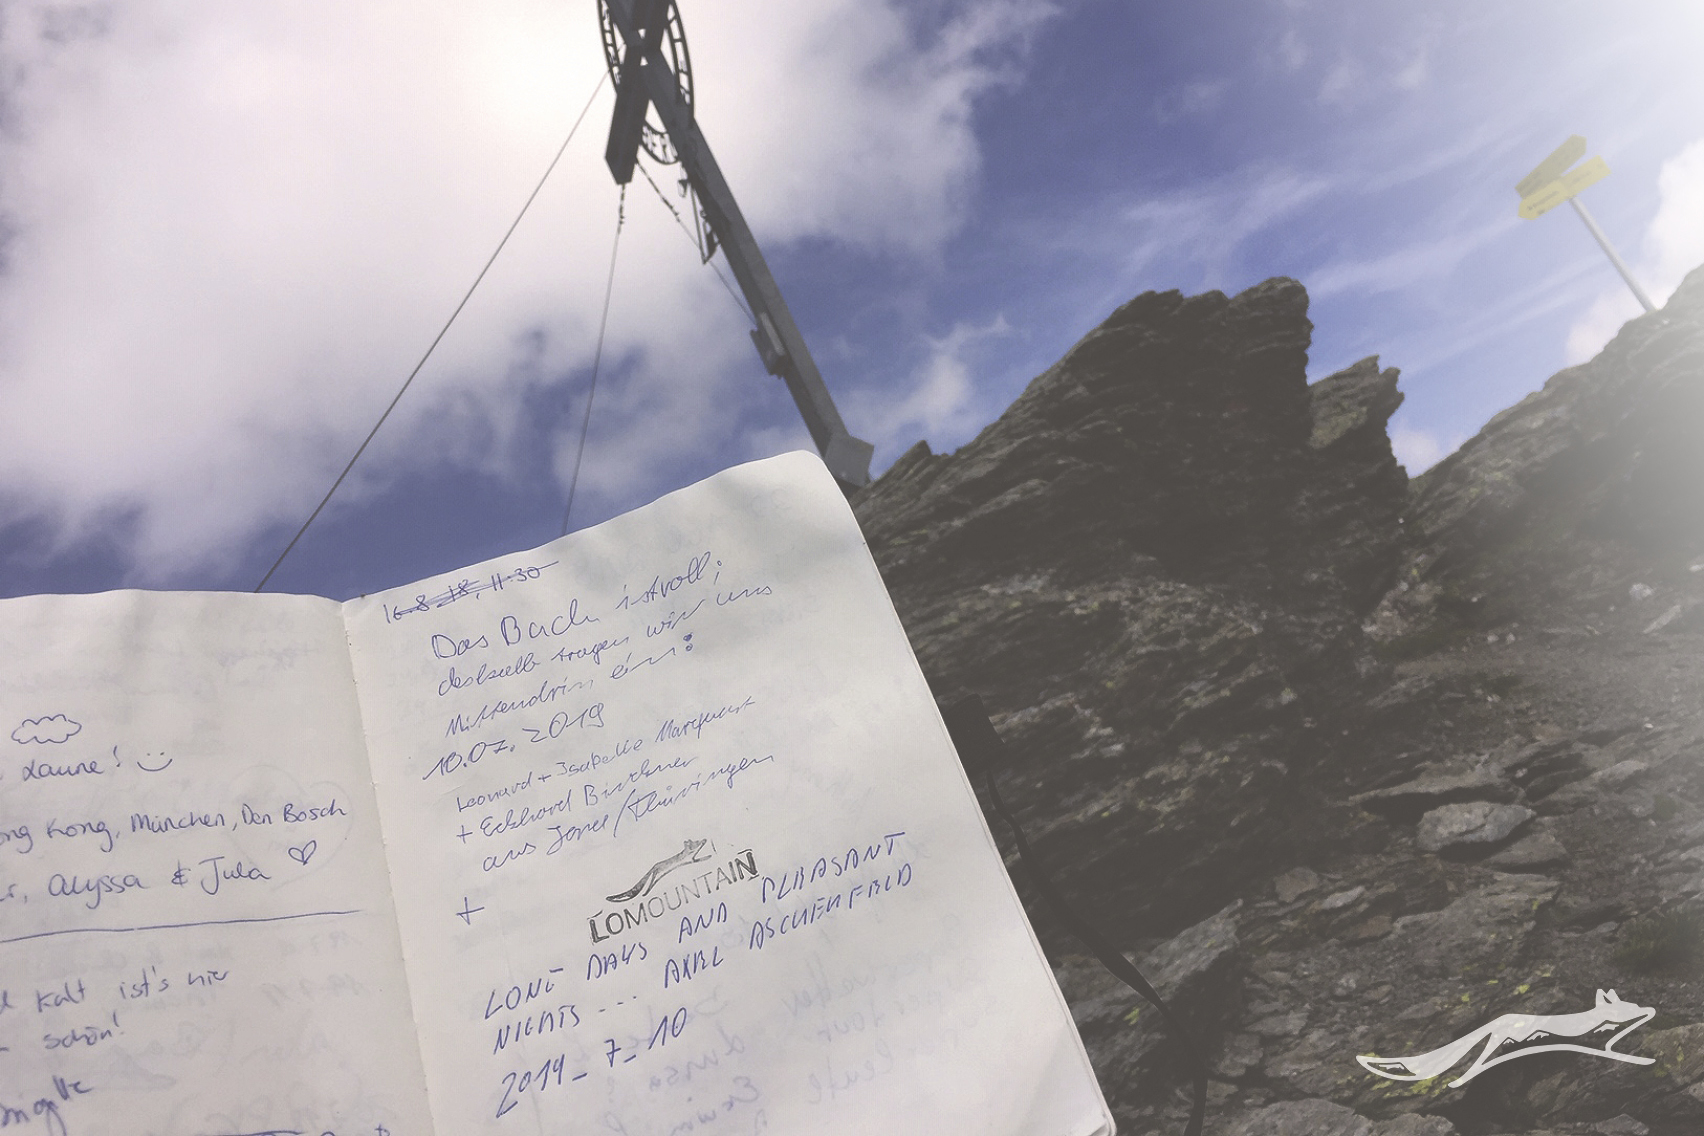 Laune!
Kong, München, Den Bosch
Alyssa & Jula
kalt ist's hier
schön!
16.8.18, 11:30
Das Buch ist voll;
deshalb tragen wir uns
Mittendrin ein:
10.07.2019
Leonard + Isabelle Marquart
+ Eckhard Birkner
aus Jena/Thüringen
+
LOMOUNTAIN
LONG DAYS AND PLEASANT
NIGHTS... AXEL ASCHENFELD
2019_7_10